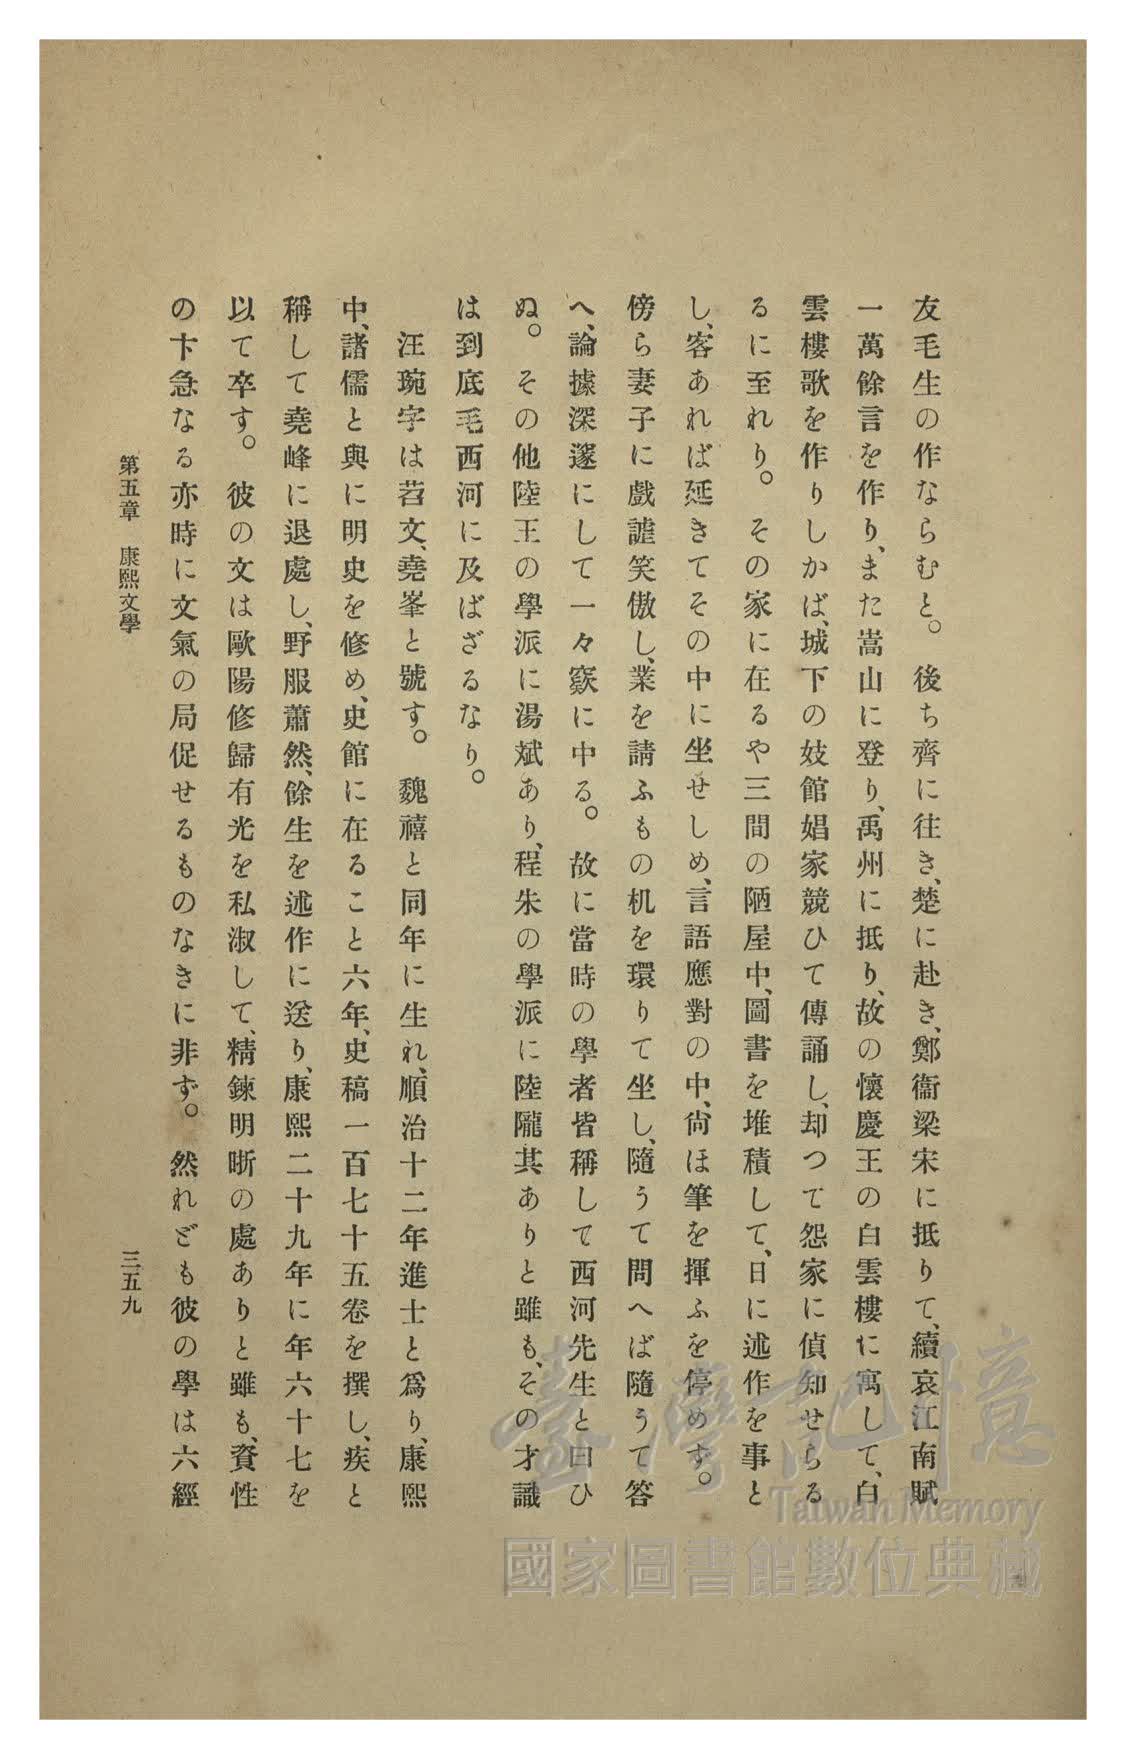 友毛生の作ならむと。後ち齊に往き、楚に赴き、鄭衞梁宋に抵りて、續哀江南賦
一萬餘言を作り、また嵩山に登り、禹州に抵り、故の懷慶王の白雲樓に寓して、白
雲樓歌を作りしかば、城下の妓館娼家競ひて傳誦し、却つて怨家に偵知せらる
るに至れり。その家に在るや三間の陋屋中、圖書を堆積して、日に述作を事と
し、客あれば延きてその中に坐せしめ、言語應對の中、尙ほ筆を揮ふを停めず。
傍ら妻子に戲謔笑傲し、業を請ふもの机を環りて坐し、隨うて問へば隨うて答
へ、論據深邃にして一々窾に中る。故に當時の學者皆稱して西河先生と曰ひ
ぬ。その他陸王の學派に湯斌あり、程朱の學派に陸隴其ありと雖も、その才識
は到底毛西河に及ばざるなり。
汪琬字は苕文、堯峯と號す。魏禧と同年に生れ、順治十二年進士と爲り、康熙
中、諸儒と與に明史を修め、史館に在ること六年、史稿一百七十五卷を撰し、疾と
稱して堯峰に退處し、野服蕭然、餘生を述作に送り、康熙二十九年に年六十七を
以て卒す。彼の文は歐陽修歸有光を私淑して、精鍊明晰の處ありと雖も、資性
の卞急なる亦時に文氣の局促せるものなきに非ず。然れども彼の學は六經
第五章　康熙文學
三五九
臺灣記憶
Taiwan Memory
國家圖書館數位典藏